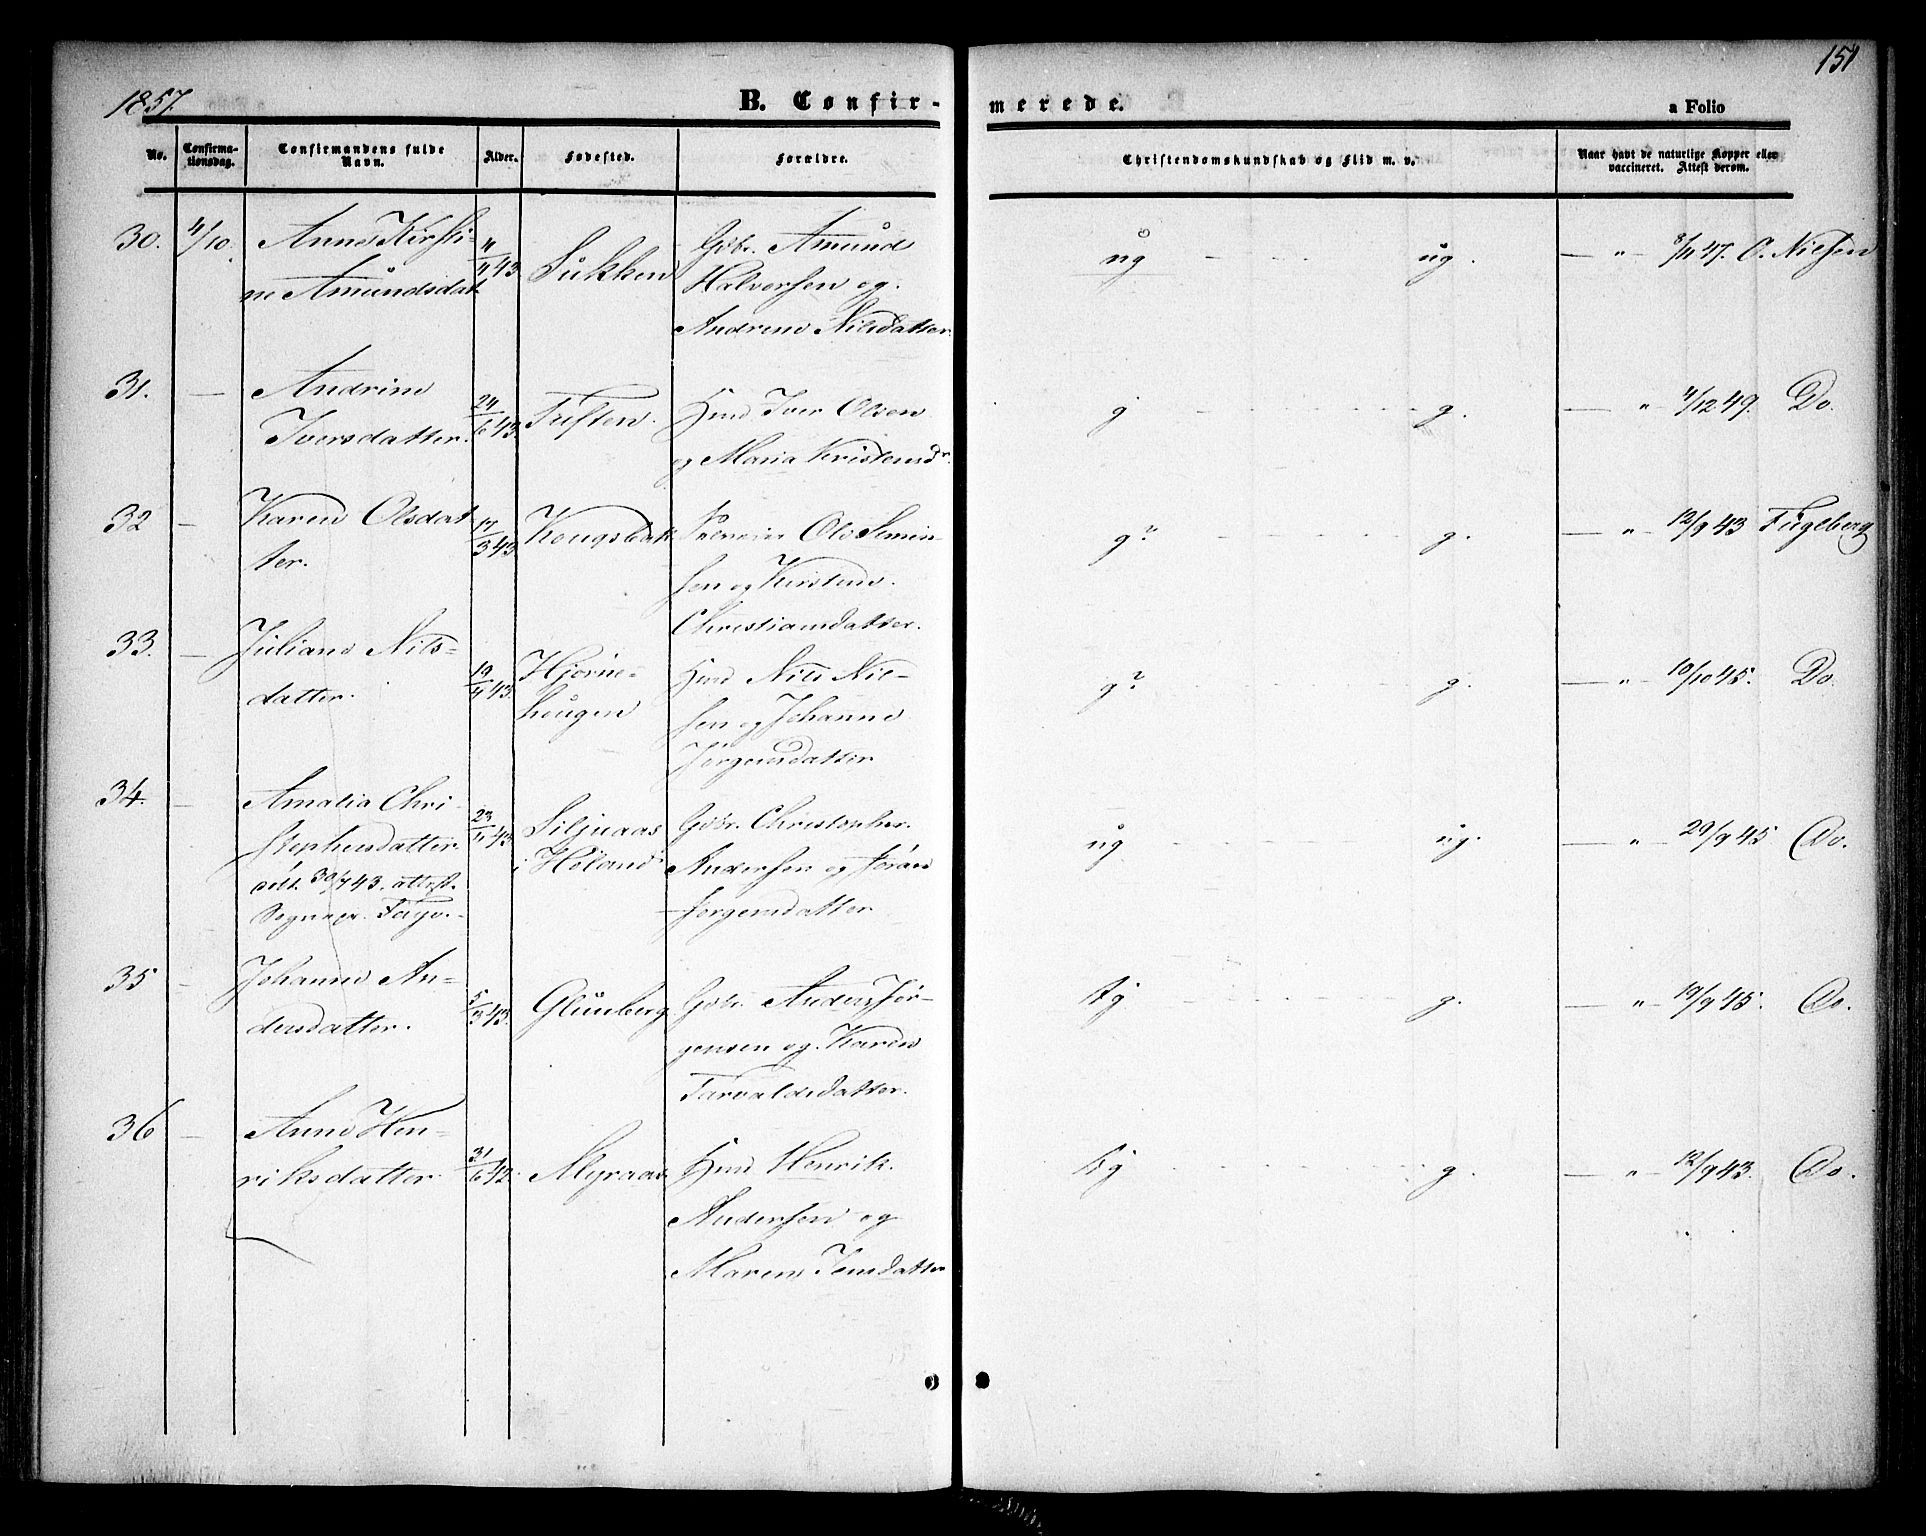 1857.
B. Confirmerede.
151
a Folio
No.
Confirmationsdag.
Confirmandens fulde Navn.
Alder.
Fødested.
Forældre.
Christendomskundskab og Flid m. v.
Naar havt de naturlige Kopper eller vaccineret. Attest derom.
30. 4/10. Anne Kirsti-
ne Amundsdat
11/11 43 Sukken
Gbr. Amund
Halvorsen og
Andrine Nilsdatter.
ug ug. — " — 8/11 47. O. Nielsen
31. — Andrine
Iversdatter.
24/6 43. Tuften.
Hmd Iver Olsen
og Maria Kristensdr.
g g. — " — 4/12 49. Do.
32 — Karen Olsdat
ter.
17/3 43. Kongsbak
Ole Simen-
sen og Kirstine
Christiansdatter.
g? g. — " — 12/9 43 Fugleberg
33. — Juliane Nils-
datter.
19/11 43. Hjørne-
haugen
Hmd Nils Niel-
sen og Johanne
Jørgensdatter
g? g. — " — 10/10 45. Do.
34. — Amalia Chri
stophersdatter.
døbt 30/7 43. attest.
23/4 43. Siljuaas
i Høland
Gbr. Christopher
Andersen og Jøran
Jørgensdatter
ug ug. " — 29/9 45 Do.
35 — Johanne An-
dersdatter.
5/3 43. Glünberg
Gbr. Anders Jør-
gensen og Karen
Tarvaldsdatter.
g g. — " — 19/9 45. Do.
36 — Anne Hen-
riksdatter
31/6 42. Myraas
Hmd Henrik
Andersen og
Maren Jensdatter
g g. — " — 12/9 43. Do.